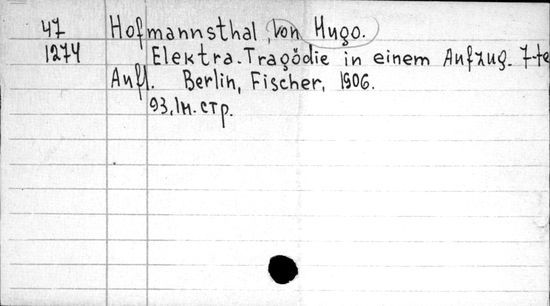 47 Hofmannsthal, von Hugo.
1274 Elektra. Tragödie in einem Aufzug. 7-te
Aufl. Berlin, Fischer, 1906.
93, IM. стр.